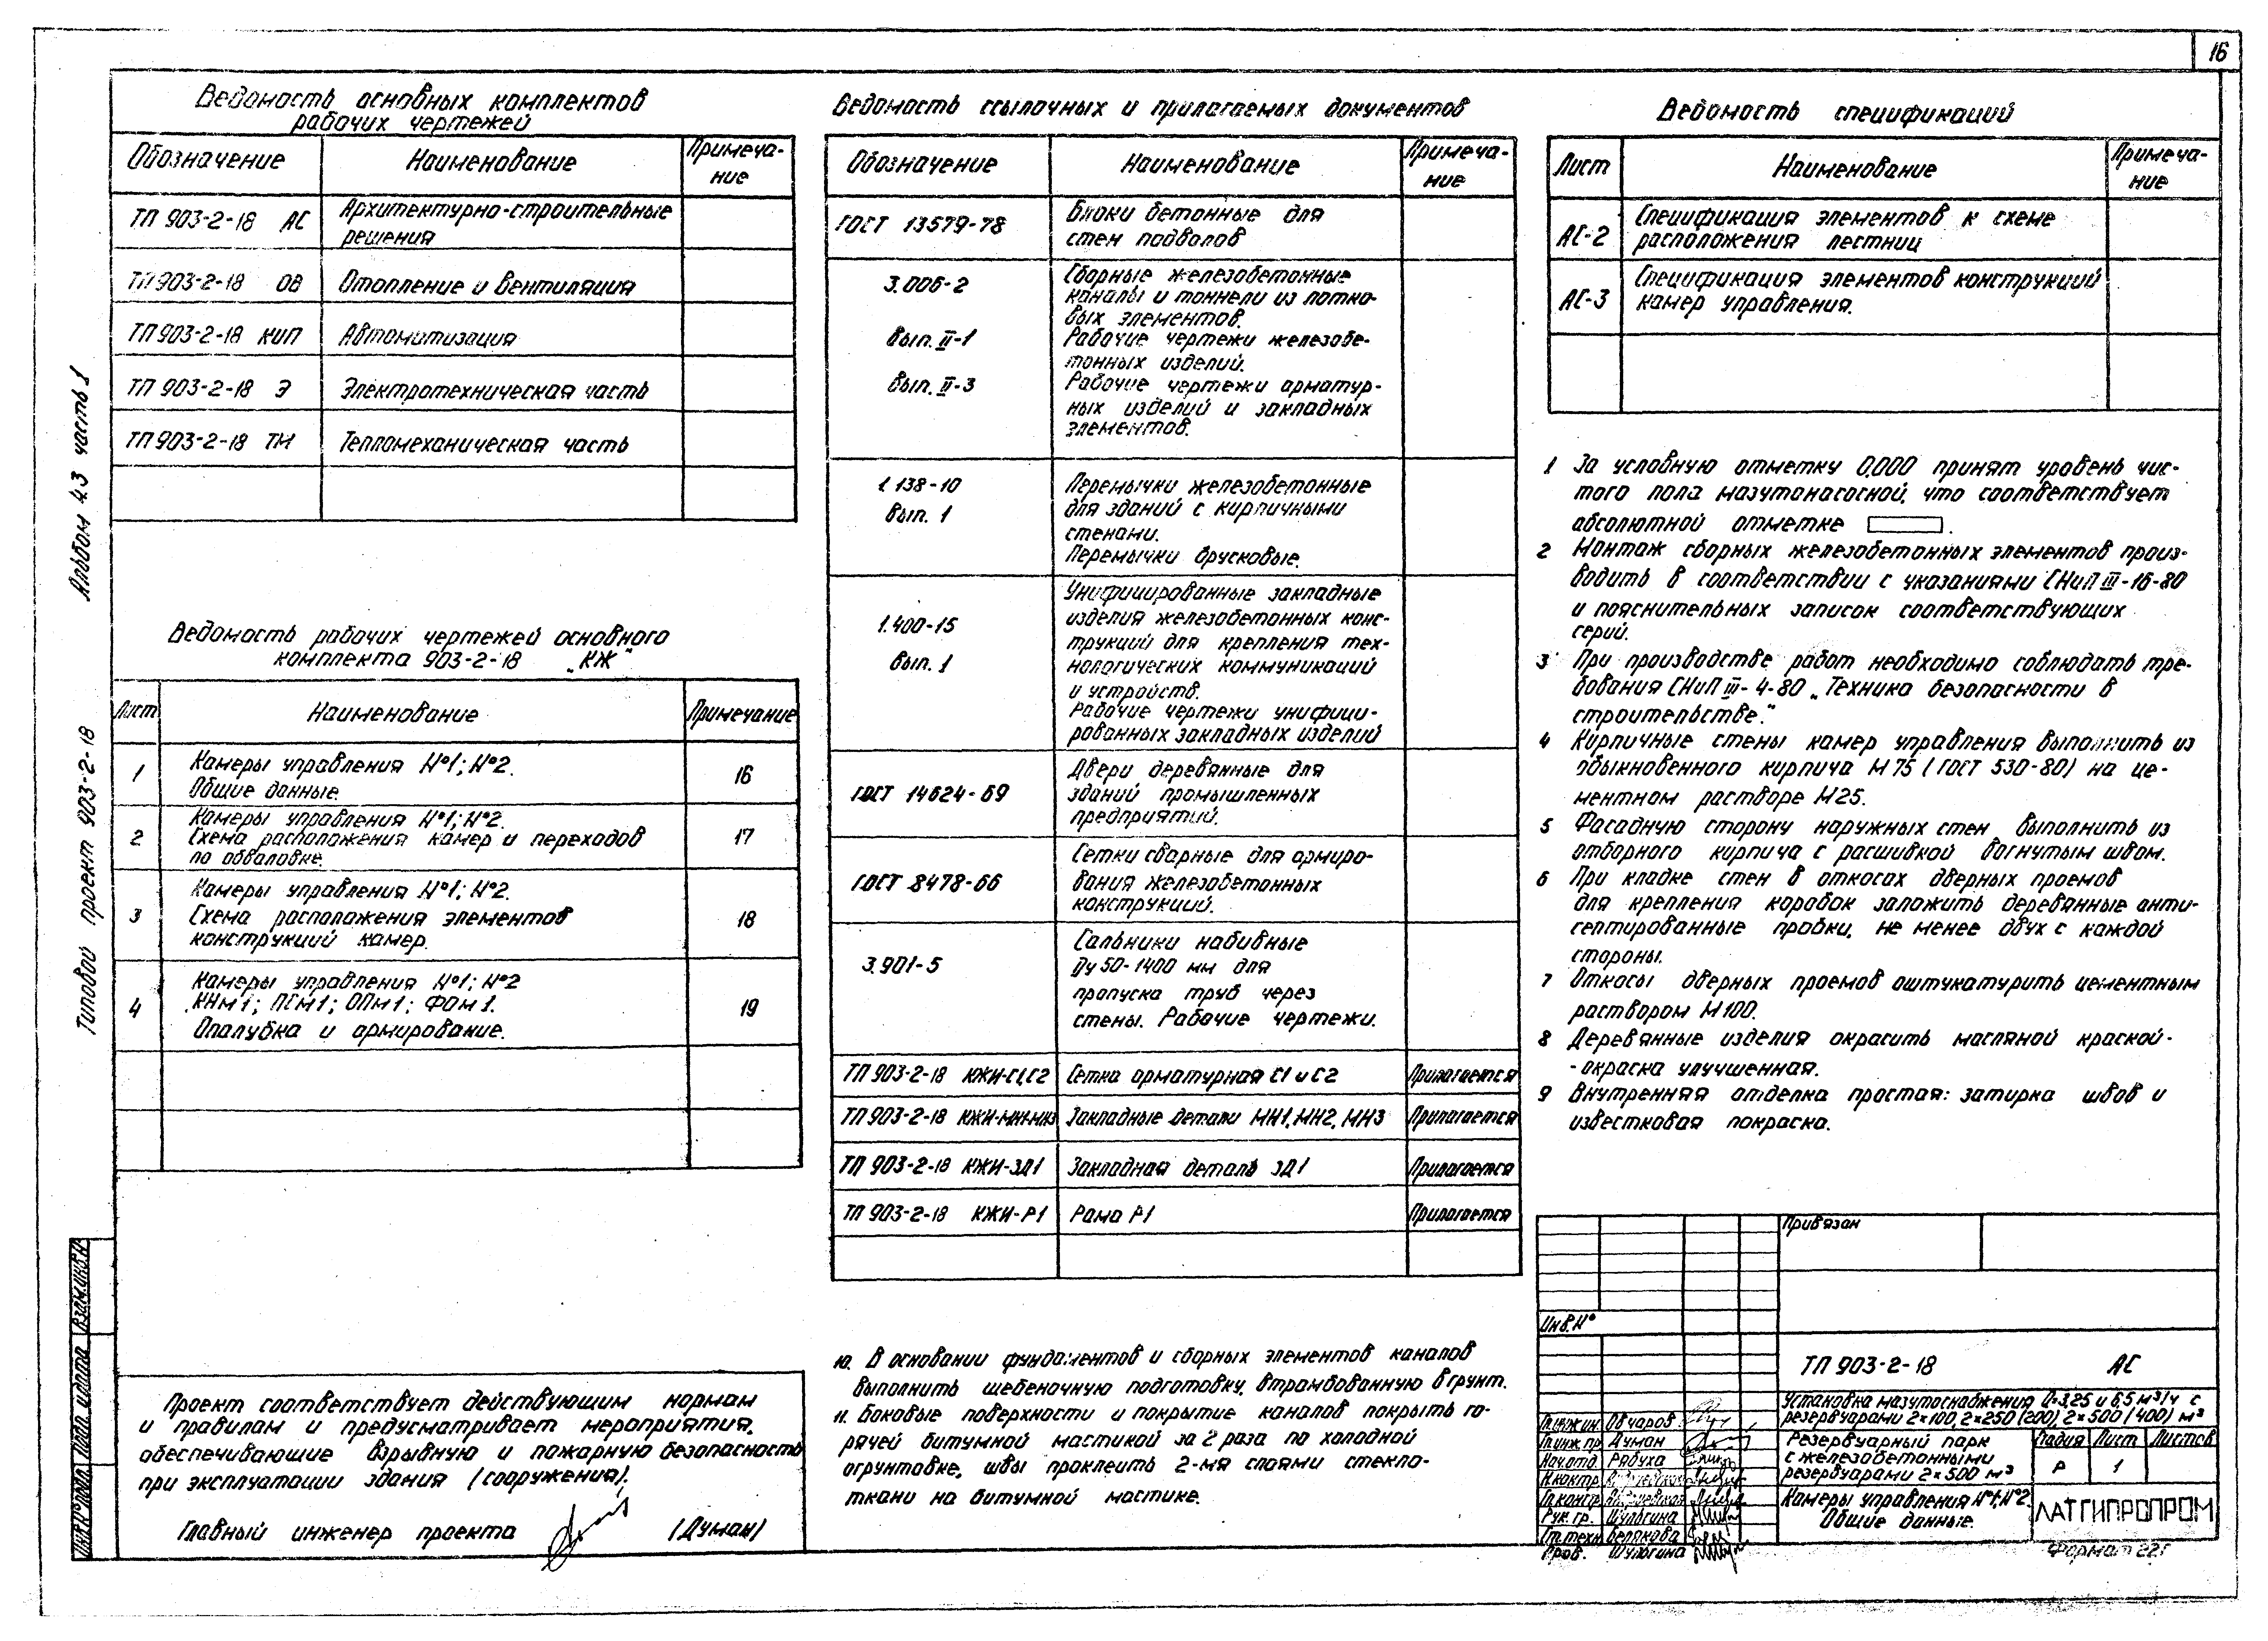 16
Альбом 4.3 часть 1
Типовой проект 903-2-18
Ведомость основных комплектов
рабочих чертежей
Обозначение Наименование Примеча-
ние
ТП 903-2-18 АС Архитектурно-строительные
решения
ТП 903-2-18 ОВ Отопление и вентиляция
ТП 903-2-18 КИП Автоматизация
ТП 903-2-18 Э Электротехническая часть
ТП 903-2-18 ТМ Тепломеханическая часть
Ведомость рабочих чертежей основного
комплекта 903-2-18 „КЖ"
Лист Наименование Примечание
1 Камеры управления №1; №2.
Общие данные. 16
Камеры управления №1; №2.
2 Схема расположения камер и переходов 17
по обваловке.
Камеры управления №1; №2.
3 Схема расположения элементов 18
конструкций камер.
Камеры управления №1; №2
4 КНм1; ПСм1; ОПм1; ФОм1. 19
Опалубка и армирование.
Проект соответствует действующим нормам
и правилам и предусматривает мероприятия,
обеспечивающие взрывную и пожарную безопасность
при эксплуатации здания (сооружения).
Главный инженер проекта (Думан)
Взам.инв.№
Подп. и дата
Инв.№ подл.
Ведомость ссылочных и прилагаемых документов
Обозначение Наименование Примеча-
ние
ГОСТ 13579-78 Блоки бетонные для
стен подвалов
3.006-2 Сборные железобетонные
каналы и тоннели из лотко-
вых элементов.
Вып. II-1 Рабочие чертежи железобе-
тонных изделий.
Вып. II-3 Рабочие чертежи арматур-
ных изделий и закладных
элементов.
1.138-10 Перемычки железобетонные
Вып. 1 для зданий с кирпичными
стенами.
Перемычки брусковые.
Унифицированные закладные
1.400-15 изделия железобетонных конс-
трукций для крепления тех-
Вып. 1 нологических коммуникаций
и устройств.
Рабочие чертежи унифици-
рованных закладных изделий
Двери деревянные для
ГОСТ 14624-69 зданий промышленных
предприятий.
Сетки сварные для армиро-
ГОСТ 8478-66 вания железобетонных
конструкций.
Сальники набивные
3.901-5 Ду 50-1400 мм для
пропуска труб через
стены. Рабочие чертежи.
ТП 903-2-18 КЖИ-С1,С2 Сетка арматурная С1 и С2 Прилагается
ТП 903-2-18 КЖИ-МН1-МН3 Закладные детали МН1, МН2, МН3 Прилагается
ТП 903-2-18 КЖИ-ЗД1 Закладная деталь ЗД1 Прилагается
ТП 903-2-18 КЖИ-Р1 Рама Р1 Прилагается
10. В основании фундаментов и сборных элементов каналов
выполнить щебеночную подготовку, втрамбованную в грунт.
11. Боковые поверхности и покрытие каналов покрыть го-
рячей битумной мастикой за 2 раза по холодной
огрунтовке, швы проклеить 2-мя слоями стекло-
ткани на битумной мастике.
Ведомость спецификаций
Лист Наименование Примеча-
ние
АС-2 Спецификация элементов к схеме
расположения лестниц
АС-3 Спецификация элементов конструкций
камер управления.
1 За условную отметку 0,000 принят уровень чис-
того пола мазутонасосной, что соответствует
абсолютной отметке .
2 Монтаж сборных железобетонных элементов произ-
водить в соответствии с указаниями СНиП III-16-80
и пояснительных записок соответствующих
серий.
3 При производстве работ необходимо соблюдать тре-
бования СНиП III-4-80 „Техника безопасности в
строительстве."
4 Кирпичные стены камер управления выполнить из
обыкновенного кирпича М 75 (ГОСТ 530-80) на це-
ментном растворе М25.
5 Фасадную сторону наружных стен выполнить из
отборного кирпича с расшивкой вогнутым швом.
6 При кладке стен в откосах дверных проемов
для крепления коробок заложить деревянные анти-
септированные пробки, не менее двух с каждой
стороны.
7 Откосы дверных проемов оштукатурить цементным
раствором М100.
8 Деревянные изделия окрасить масляной краской-
-окраска улучшенная.
9 Внутренняя отделка простая: затирка швов и
известковая покраска.
Привязан
Инв.№
ТП 903-2-18 АС
Установка мазутоснабжения Q=3,25 и 6,5 м³/ч с
резервуарами 2×100, 2×250 (200), 2×500 (400) м³
Гл.инж.ин Овчаров
Гл.инж.пр. Думан
Нач.отд. Рядуха
Н.контр.
Гл.констр.
Рук. гр. Шульгина
Ст.техн. Белякова
Пров. Шульгина
Резервуарный парк
с железобетонными
резервуарами 2×500 м³
Стадия Лист Листов
Р 1
Камеры управления №1; №2.
Общие данные.
ЛАТГИПРОПРОМ
Формат 22Г